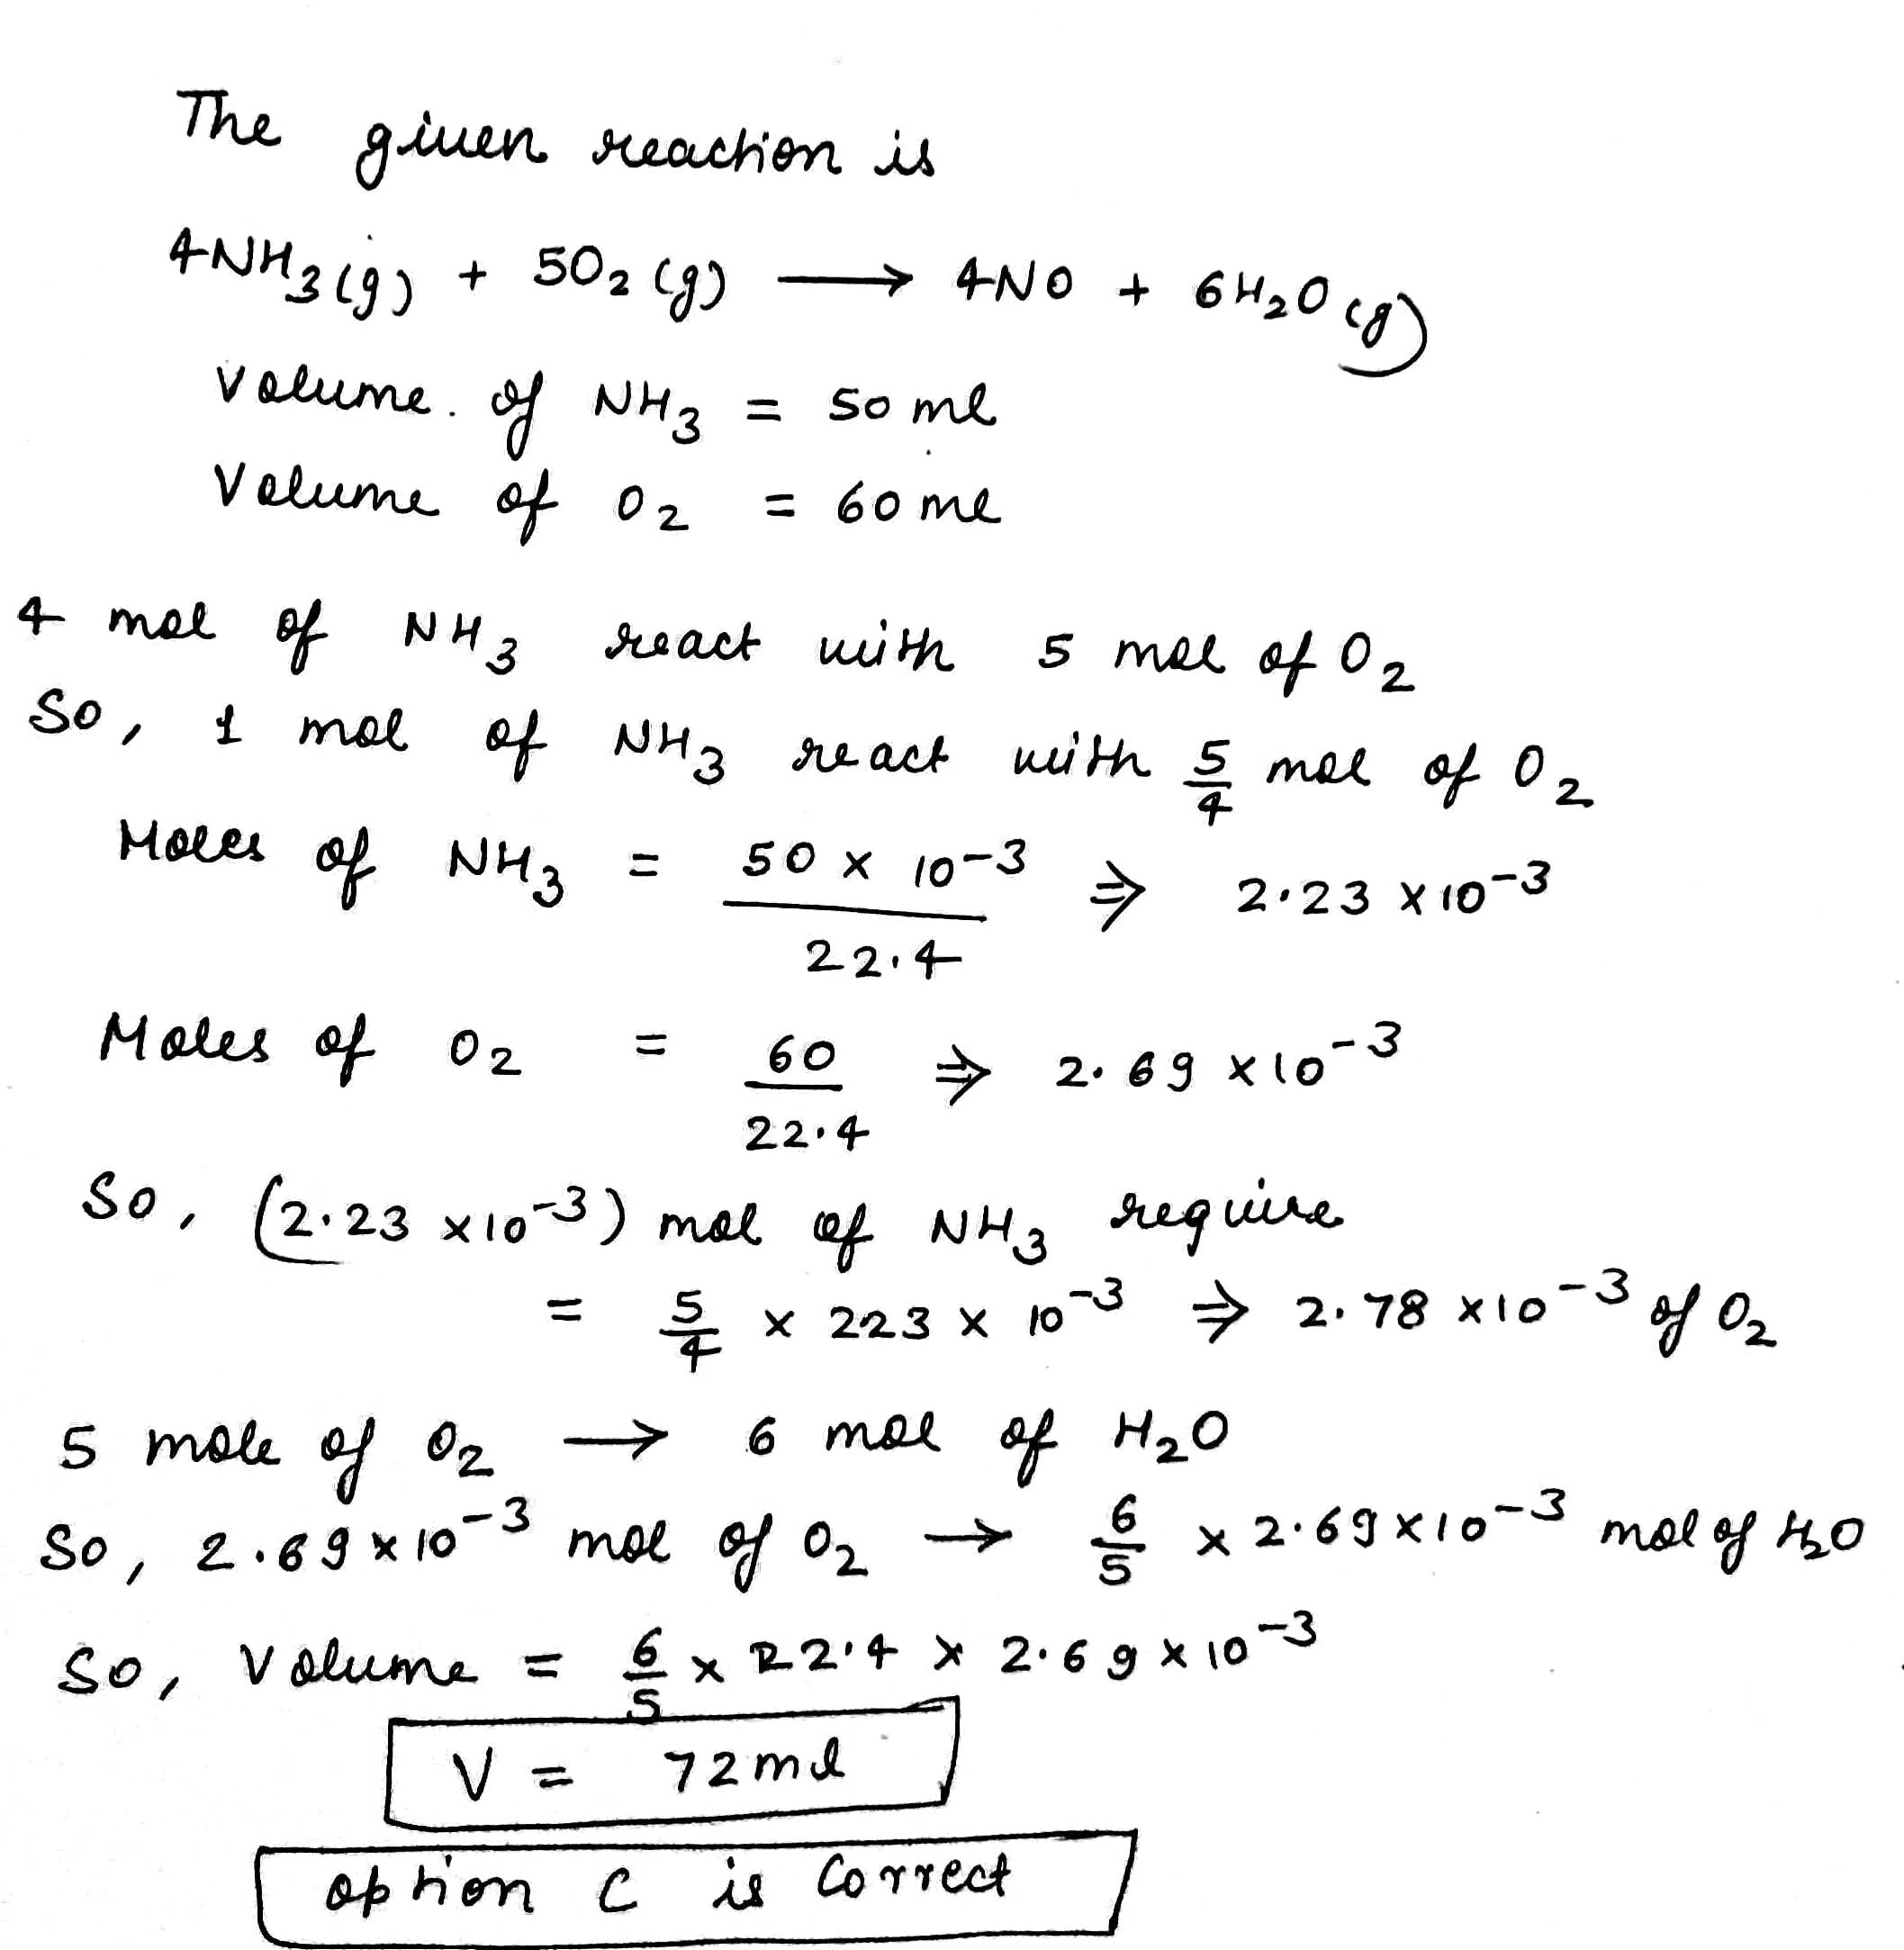 The given reaction is
4NH₃(g) + 5O₂(g) ⟶ 4NO + 6H₂O(g)
Volume. of NH₃ = 50 ml
Volume of O₂ = 60 ml
4 mol of NH₃ react with 5 mol of O₂
So, 1 mol of NH₃ react with 5/4 mol of O₂
Moles of NH₃ = (50 × 10⁻³)/22.4 ⇒ 2.23 × 10⁻³
Moles of O₂ = 60/22.4 ⇒ 2.69 × 10⁻³
So, (2.23 × 10⁻³) mol of NH₃ require
= 5/4 × 223 × 10⁻³ ⇒ 2.78 × 10⁻³ of O₂
5 mole of O₂ → 6 mol of H₂O
So, 2.69 × 10⁻³ mol of O₂ → 6/5 × 2.69 × 10⁻³ mol of H₂O
So, Volume = 6/5 × 22.4 × 2.69 × 10⁻³
V = 72 ml
option C is Correct